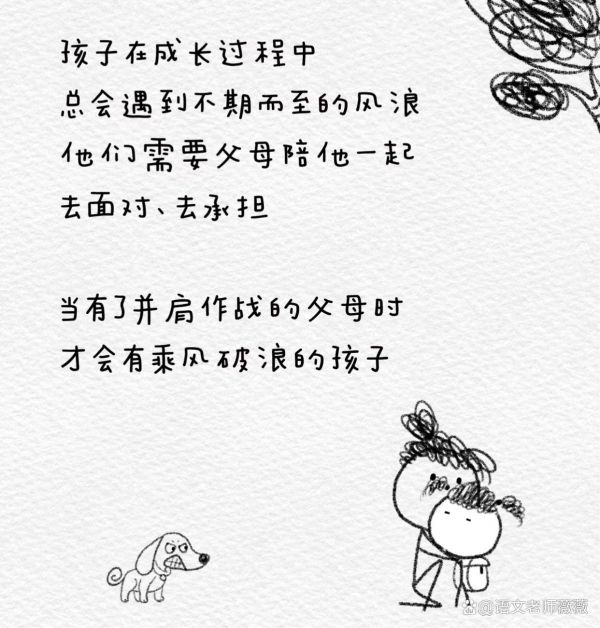 孩子在成长过程中
总会遇到不期而至的风浪
他们需要父母陪他一起
去面对、去承担
当有了并肩作战的父母时
才会有乘风破浪的孩子
@语文老师薇薇